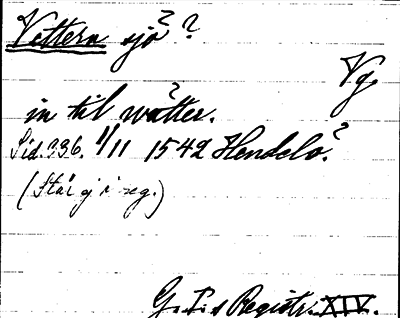 Vettern sjö?
Vg.
in til wätter.
Sid. 336. 1/11 1542 Hendelö?
(Står ej i reg.)
G. I:s Registr. XIV.